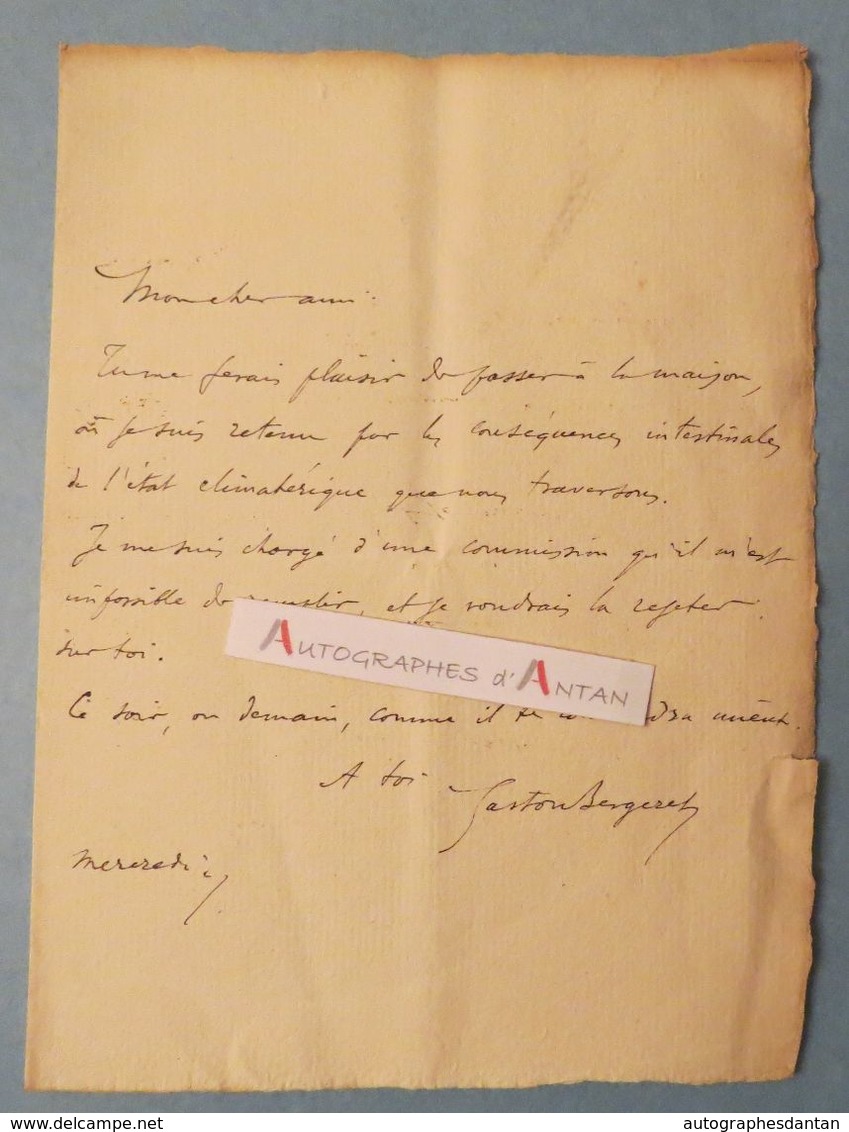 Mon cher ami.
Tu me ferais plaisir de passer à la maison,
où je suis retenu par les conséquences intestinales
de l'état climatérique que nous traversons.
Je me suis chargé d'une commission qu'il m'est
impossible de remplir, et je voudrais la rejeter
sur toi.
AUTOGRAPHES d'ANTAN
Ce soir, ou demain, comme il te mieux.
A toi
Gaston Bergeret
mercredi
delcampe.net
autographesdantan